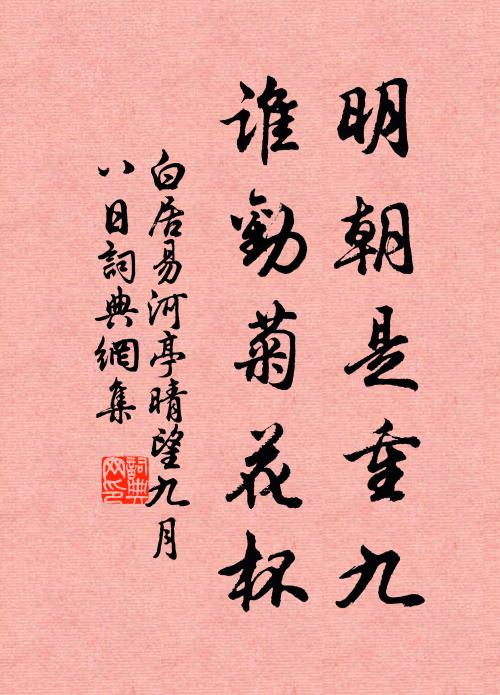 明朝是重九
谁勸菊花杯
白居易河亭晴望九月
八日詞典網集
詞典网印